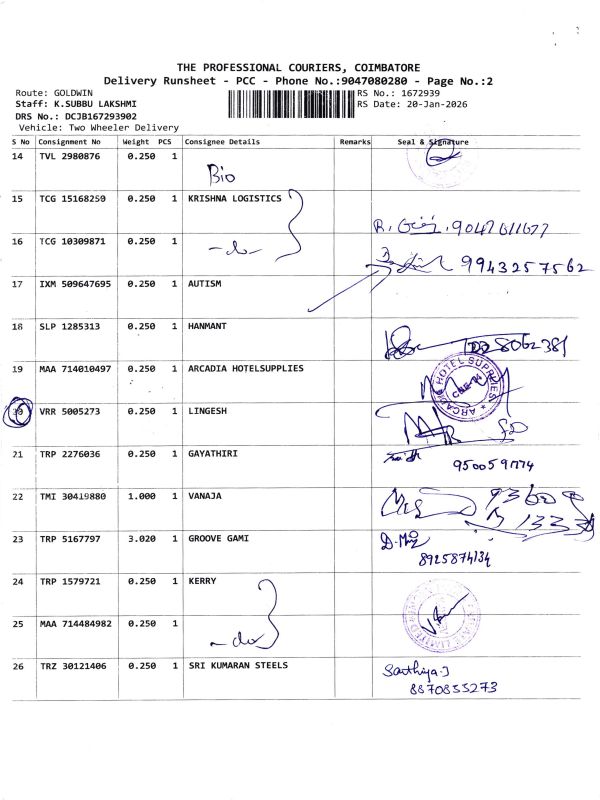 THE PROFESSIONAL COURIERS, COIMBATORE
Delivery Runsheet - PCC - Phone No.:9047080280 - Page No.:2
Route: GOLDWIN
Staff: K.SUBBU LAKSHMI
DRS No.: DCJB167293902
Vehicle: Two Wheeler Delivery
RS No.: 1672939
RS Date: 20-Jan-2026
S No Consignment No Weight PCS Consignee Details Remarks Seal & Signature
14 TVL 2980876 0.250 1 Bio
15 TCG 15168250 0.250 1 KRISHNA LOGISTICS R. 9047611677
16 TCG 10309871 0.250 1 -do- 9943257562
17 IXM 509647695 0.250 1 AUTISM
18 SLP 1285313 0.250 1 HANMANT
19 MAA 714010497 0.250 1 ARCADIA HOTELSUPPLIES ARCADIA HOTEL SUPPLIES
20 VRR 5005273 0.250 1 LINGESH
21 TRP 2276036 0.250 1 GAYATHIRI
22 TMI 30419880 1.000 1 VANAJA
23 TRP 5167797 3.020 1 GROOVE GAMI 8925874134
24 TRP 1579721 0.250 1 KERRY
25 MAA 714484982 0.250 1 -do-
26 TRZ 30121406 0.250 1 SRI KUMARAN STEELS Sathiya.J
8870855273